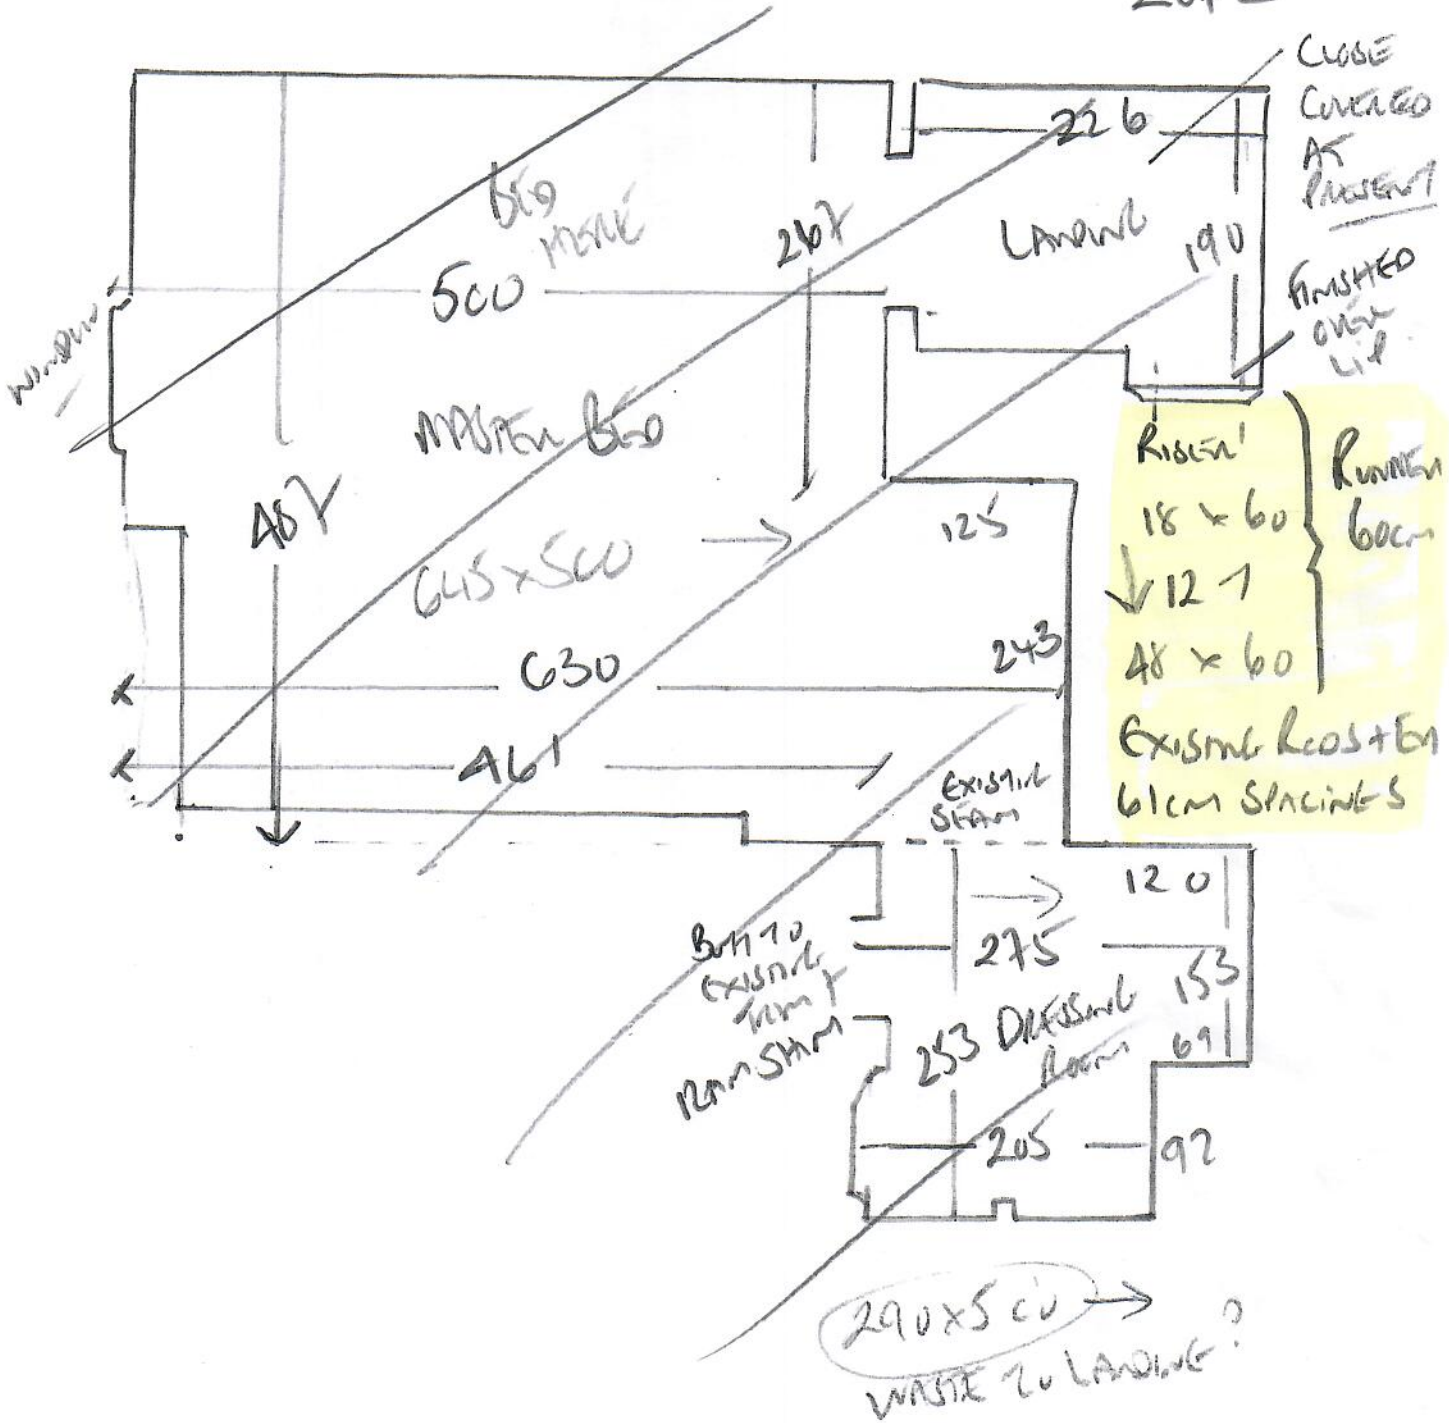 CLOSE
COVERED
AT
PRESENT
226
BED
HERE
LANDING
267
190
500
FINISHED
OVER
LIP
WINDOW
MASTER BED
RISER
18 x 60
12 T
48 x 60
RUNNER
60cm
EXISTING RODS + EM
61cm SPACINGS
487
125
645 x 500
243
630
461
EXISTING
SEAM
120
275
BUTT TO
EXISTING
TRIM +
RAMSHIM
153
253
DRESSING
ROOM
69
205
92
290 x 500
WASTE TO LANDING?